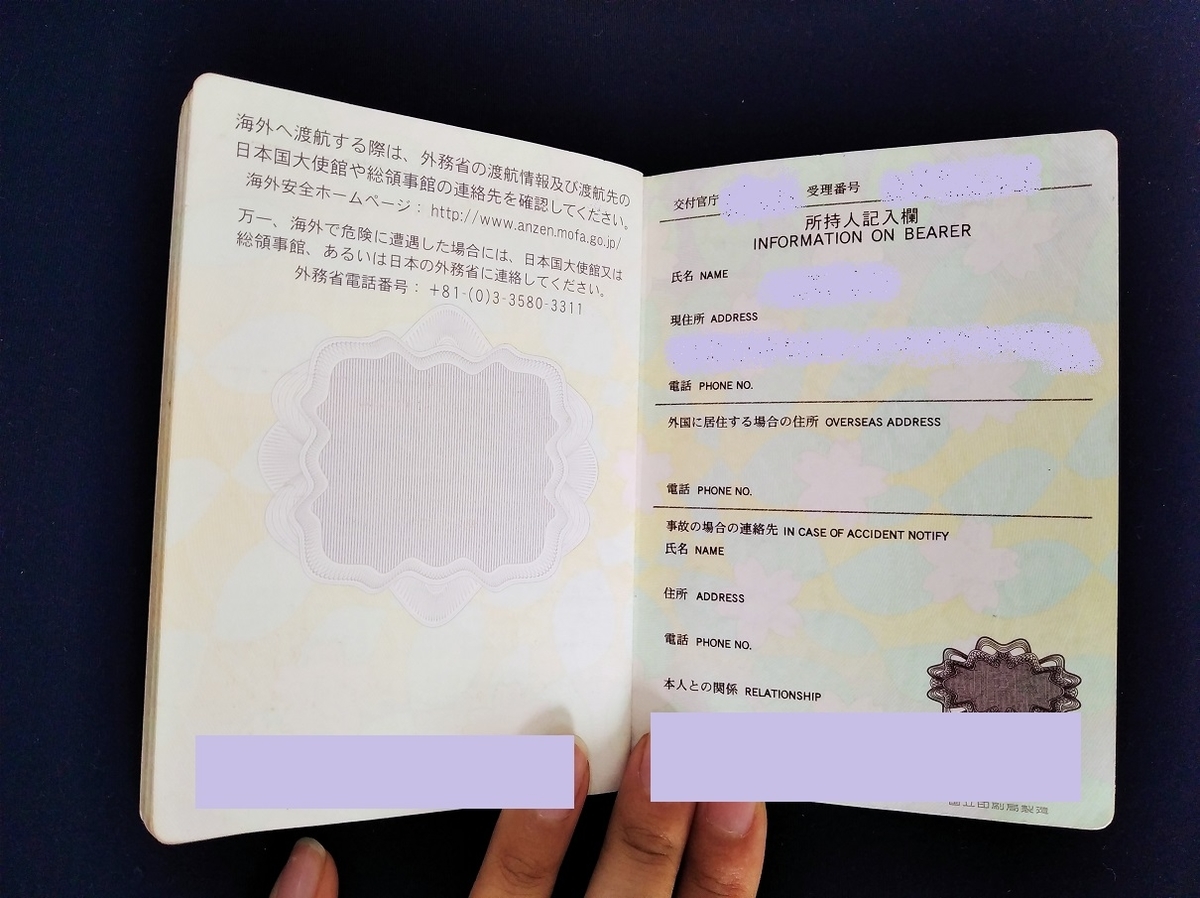 海外へ渡航する際は、外務省の渡航情報及び渡航先の
日本国大使館や総領事館の連絡先を確認してください。
海外安全ホームページ：http://www.anzen.mofa.go.jp/
万一、海外で危険に遭遇した場合には、日本国大使館又は
総領事館、あるいは日本の外務省に連絡してください。
外務省電話番号：+81-(0)3-3580-3311
交付官庁 受理番号
所持人記入欄
INFORMATION ON BEARER
氏名 NAME
現住所 ADDRESS
電話 PHONE NO.
外国に居住する場合の住所 OVERSEAS ADDRESS
電話 PHONE NO.
事故の場合の連絡先 IN CASE OF ACCIDENT NOTIFY
氏名 NAME
住所 ADDRESS
電話 PHONE NO.
本人との関係 RELATIONSHIP
国立印刷局製造